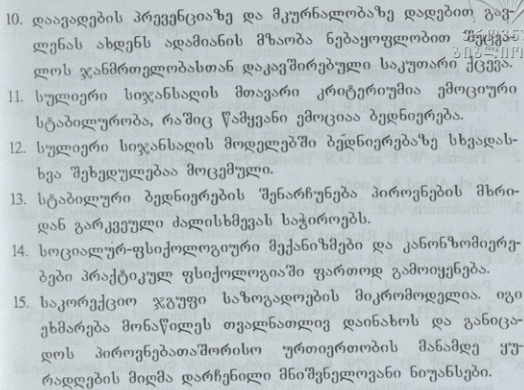 10. დაავადების პრევენციაზე და მკურნალობაზე დადებით გავ-
ლენას ახდენს ადამიანის მზაობა ნებაყოფლობით შეცვა-
ლოს ჯანმრთელობასთან დაკავშირებული საკუთარი ქცევა.
11. სულიერი სიჯანსაღის მთავარი კრიტერიუმია ემოციური
სტაბილურობა, რაშიც წამყვანი ემოციაა ბედნიერება.
12. სულიერი სიჯანსაღის მოდელებში ბედნიერებაზე სხვადას-
ხვა შეხედულებაა მოცემული.
13. სტაბილური ბედნიერების შენარჩუნება პიროვნების მხრი-
დან გარკვეული ძალისხმევას საჭიროებს.
14. სოციალურ-ფსიქოლოგიური მექანიზმები და კანონზომიერე-
ბები პრაქტიკულ ფსიქოლოგიაში ფართოდ გამოიყენება.
15. საკორექციო ჯგუფი საზოგადოების მიკრომოდელია. იგი
ეხმარება მონაწილეს თვალნათლივ დაინახოს და განიცა-
დოს პიროვნებათაშორისო ურთიერთობის მანამდე ყუ-
რადღების მიღმა დარჩენილი მნიშვნელოვანი ნიუანსები.